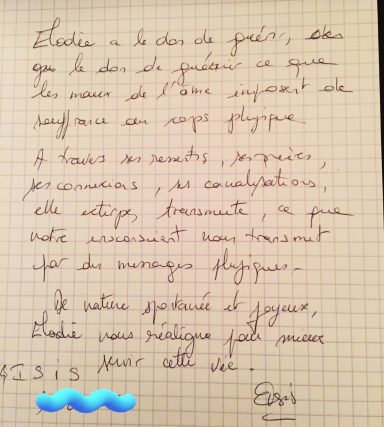 Elodie a le don de guérir,
que le don de guérir ce que
les maux de l'âme imposent de
souffrance au corps physique
A travers ses ressentis, ses prières,
ses connexions, ses canalisations,
elle extirpe, transmute, ce que
notre inconscient nous transmet
par des messages physiques.
De nature spontanée et joyeuse,
Elodie nous réaligne pour mieux
servir cette vie.
ISIS